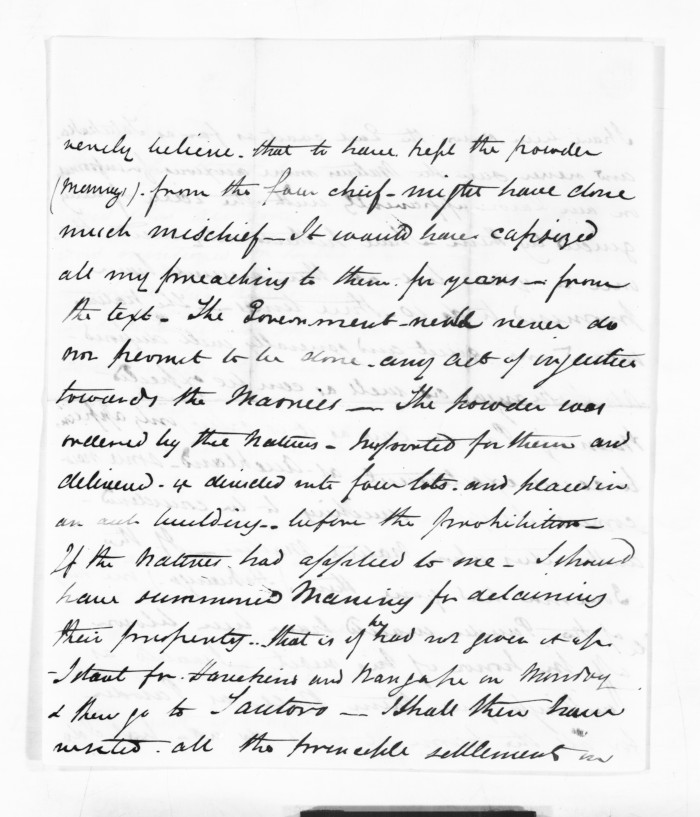 verily believe - that to have kept the powder
(Maning's) - from the four chief - might have done
much mischief - It would have capsized
all my preaching to them for years - from
the text - The Government never do
nor permit to be done - any act of injustice
towards the Maories - The powder was
ordered by the Natives - Imported for them and
delivered - & divided into four lots - and placed in
an out building - before the prohibition -
If the Natives had applied to me - I should
have summoned Maning for detaining
their property - that is if he had not given it up -
- I start for and on Monday
& then go to - I shall then have
visited - all the principle settlement in